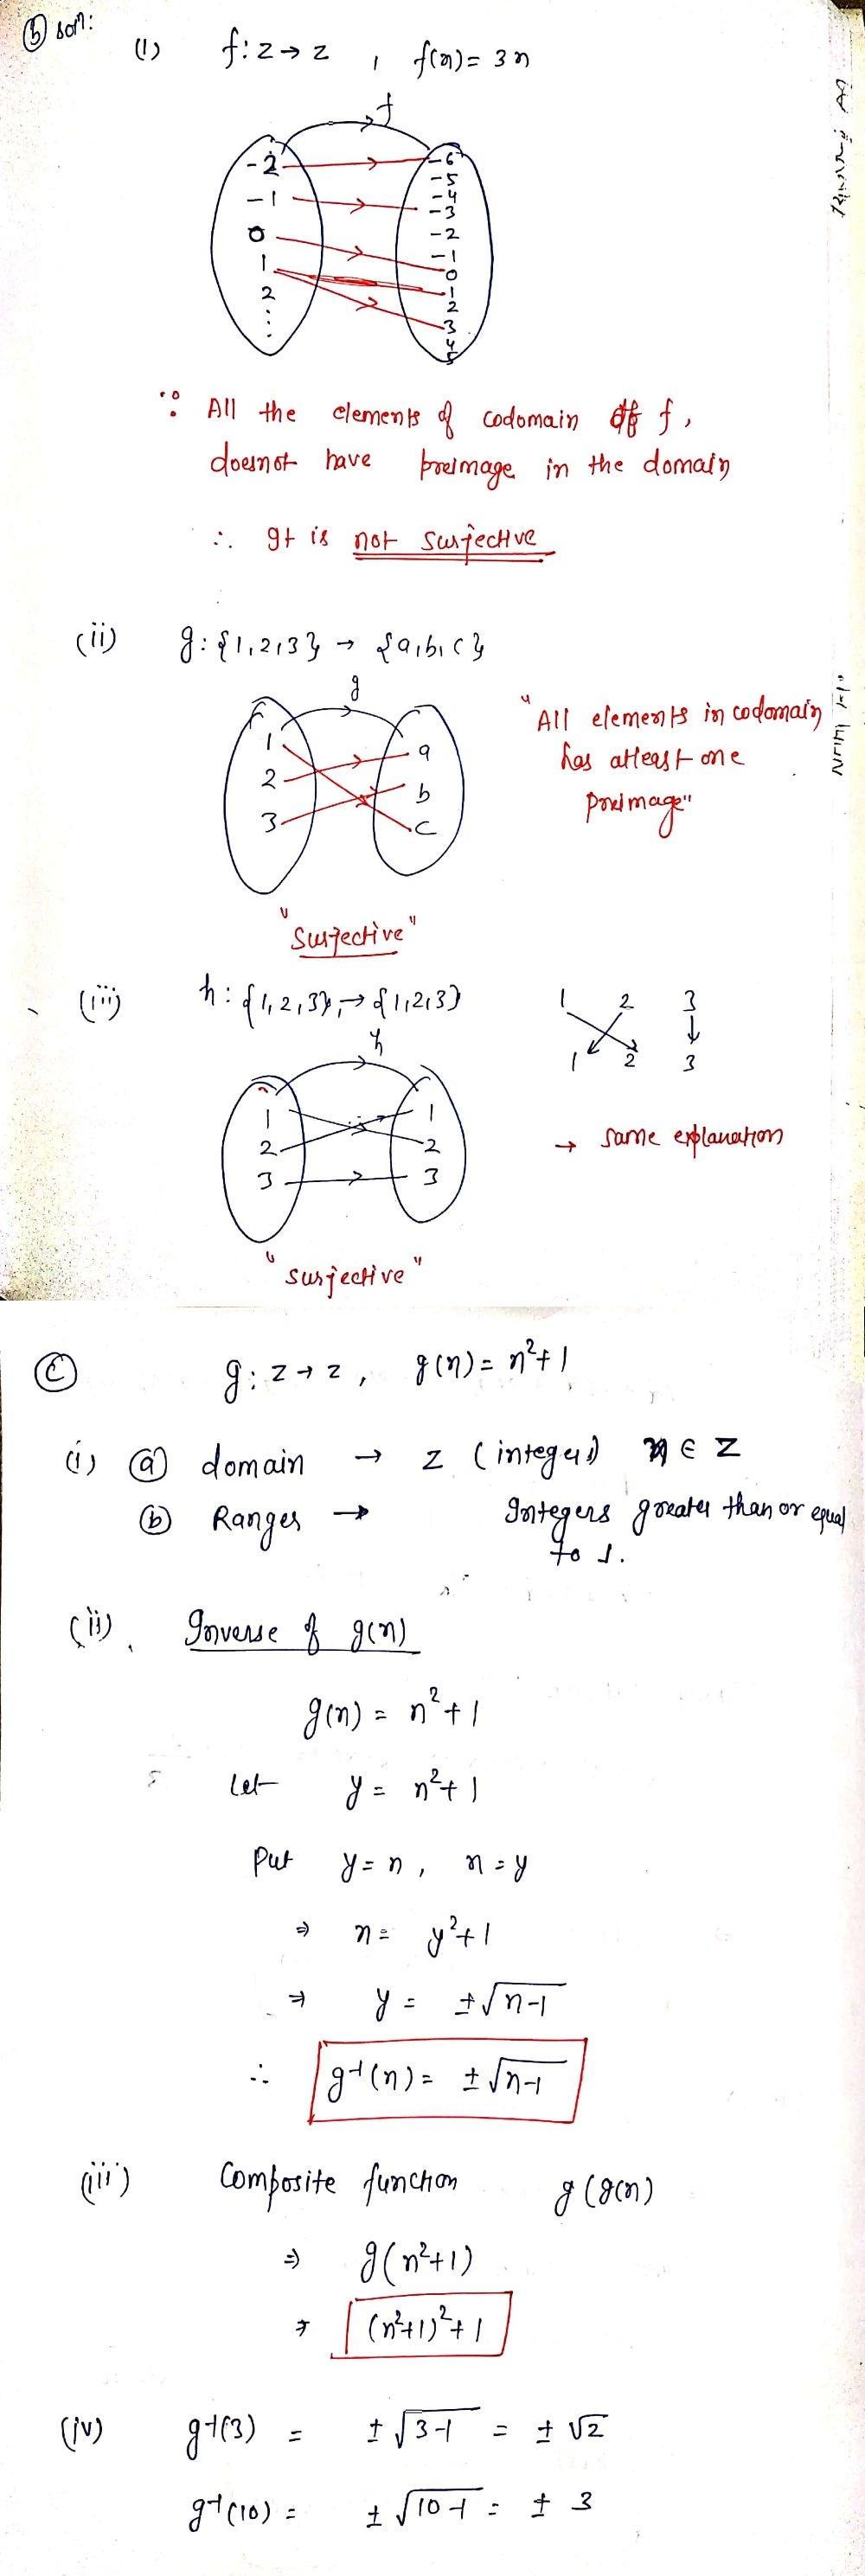 (b) son:
(1) f: z → z , f(n) = 3n
f
-2
-1
0
1
2
⋮
-6
-5
-4
-3
-2
-1
0
1
2
3
4
5
∵ All the elements of codomain of f,
doesnot have preimage in the domain
∴ It is not surjective
(ii) g: {1,2,3} → {a,b,c}
g
1
2
3
a
b
c
"All elements in codomain
has atleast one
preimage"
"surjective"
(iii) h: {1,2,3} → {1,2,3}
h
1
2
3
1
2
3
1 2 3
1 2 3
→ same explanation
"surjective"
(c) g: z → z , g(n) = n²+1
(i) (a) domain → z (integers) n ∈ Z
(b) Ranges → Integers greater than or equal
to 1.
(ii). Inverse of g(n)
g(n) = n²+1
Let y = n²+1
Put y = n , n = y
⇒ n = y²+1
⇒ y = ±√n-1
∴ g⁻¹(n) = ±√n-1
(iii) Composite function g(g(n)
⇒ g(n²+1)
⇒ (n²+1)²+1
(iv) g⁻¹(3) = ±√3-1 = ±√2
g⁻¹(10) = ±√10-1 = ± 3